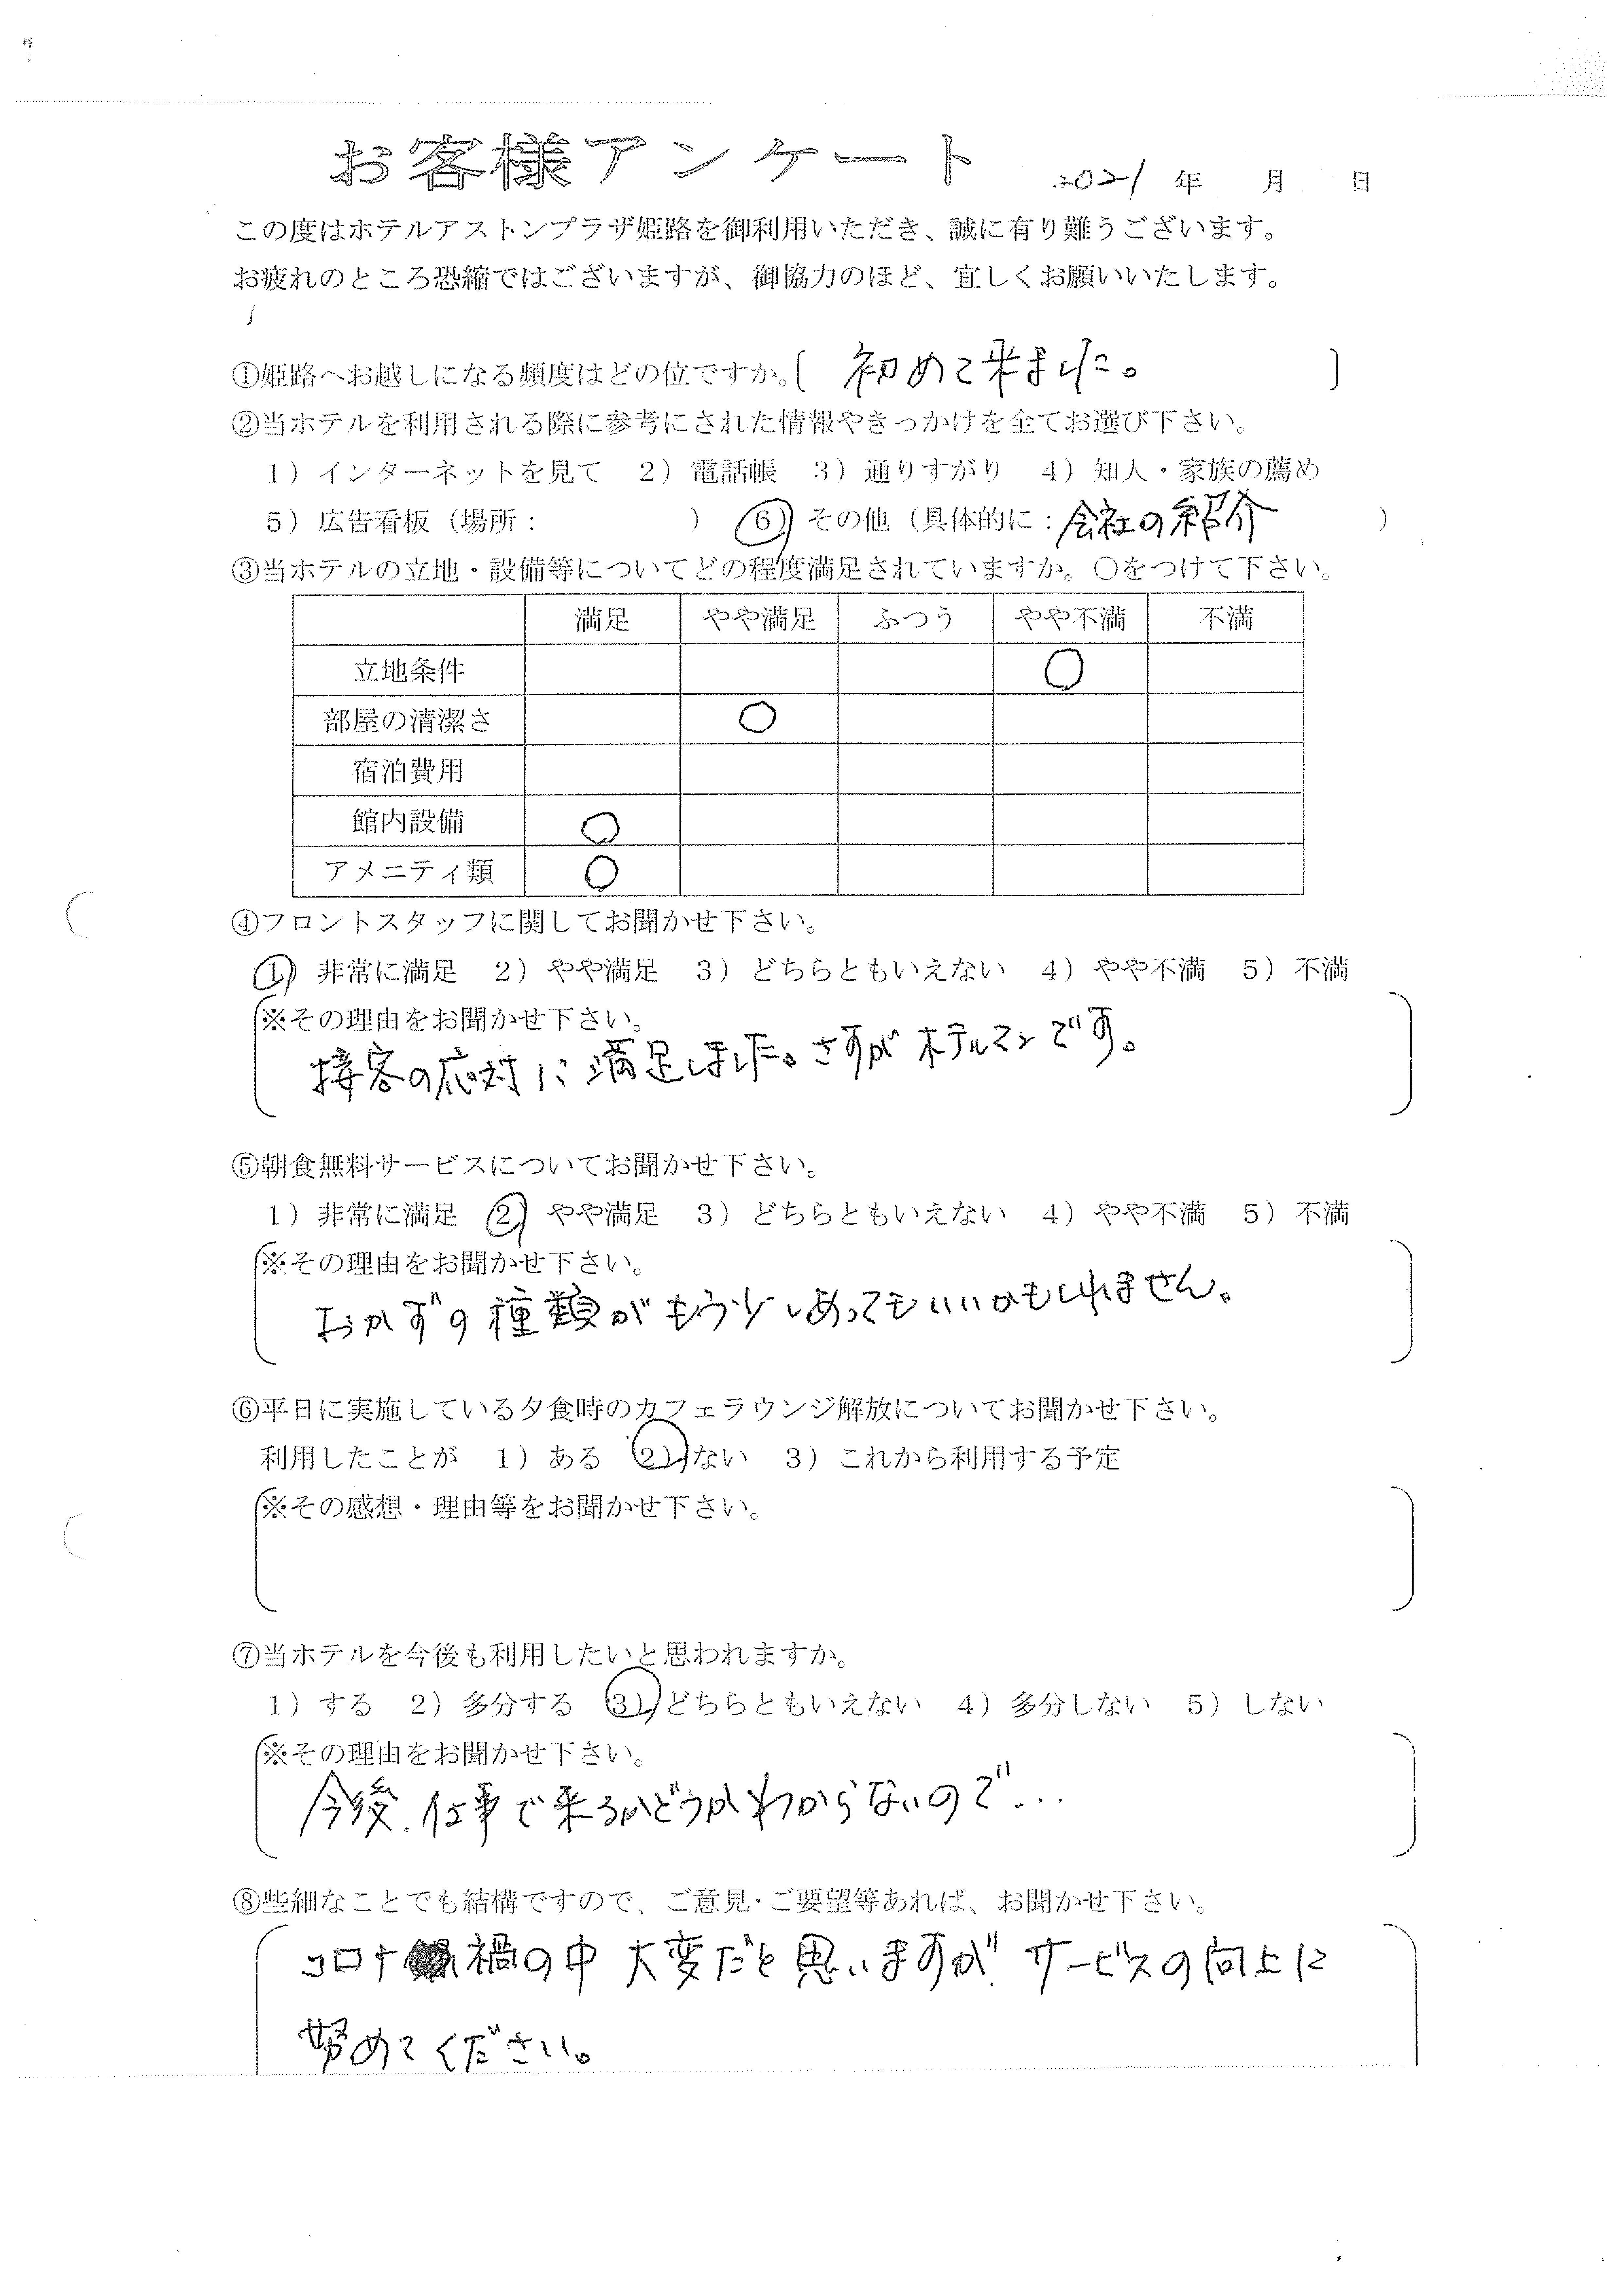 お客様アンケート 2021 年 月 日
この度はホテルアストンプラザ姫路を御利用いただき、誠に有り難うございます。
お疲れのところ恐縮ではございますが、御協力のほど、宜しくお願いいたします。
①姫路へお越しになる頻度はどの位ですか。〔 初めて来ました。 〕
②当ホテルを利用される際に参考にされた情報やきっかけを全てお選び下さい。
1）インターネットを見て 2）電話帳 3）通りすがり 4）知人・家族の薦め
5）広告看板（場所： ） 6）その他（具体的に：会社の紹介 ）
③当ホテルの立地・設備等についてどの程度満足されていますか。○をつけて下さい。
満足 やや満足 ふつう やや不満 不満
立地条件 ○
部屋の清潔さ ○
宿泊費用
館内設備 ○
アメニティ類 ○
④フロントスタッフに関してお聞かせ下さい。
1）非常に満足 2）やや満足 3）どちらともいえない 4）やや不満 5）不満
※その理由をお聞かせ下さい。
接客の応対に満足しました。さすがホテルマンです。
⑤朝食無料サービスについてお聞かせ下さい。
1）非常に満足 2）やや満足 3）どちらともいえない 4）やや不満 5）不満
※その理由をお聞かせ下さい。
おかずの種類がもう少しあってもいいかもしれません。
⑥平日に実施している夕食時のカフェラウンジ解放についてお聞かせ下さい。
利用したことが 1）ある 2）ない 3）これから利用する予定
※その感想・理由等をお聞かせ下さい。
⑦当ホテルを今後も利用したいと思われますか。
1）する 2）多分する 3）どちらともいえない 4）多分しない 5）しない
※その理由をお聞かせ下さい。
今後、仕事で来るかどうかわからないので…
⑧些細なことでも結構ですので、ご意見・ご要望等あれば、お聞かせ下さい。
コロナ禍の中 大変だと思いますが、サービスの向上に
努めてください。